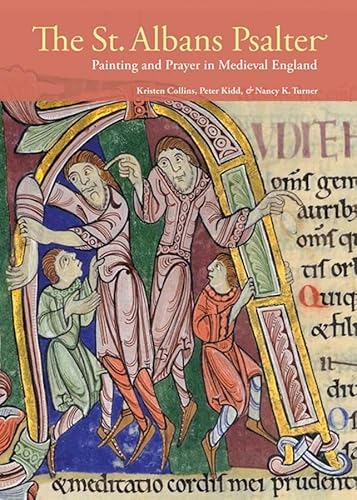 The St. Albans Psalter
Painting and Prayer in Medieval England
Kristen Collins, Peter Kidd, & Nancy K. Turner
UDITE H
om̄s gem
auribꝰ
om̄s qu
tis orb
Quiq
& filii
dis
pau
Os meū
& meditatio cordis mei prudenti